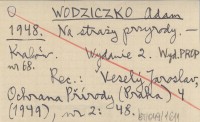 Q WODZICZKO Adam
1948. Na straży przyrody. —
Kraków. Wydanie 2. Wyd. PROP
nr 68.
Rec.: Veselý Jaroslav,
Ochrana Přírody (Praha) 4
(1949), nr 2: 48.